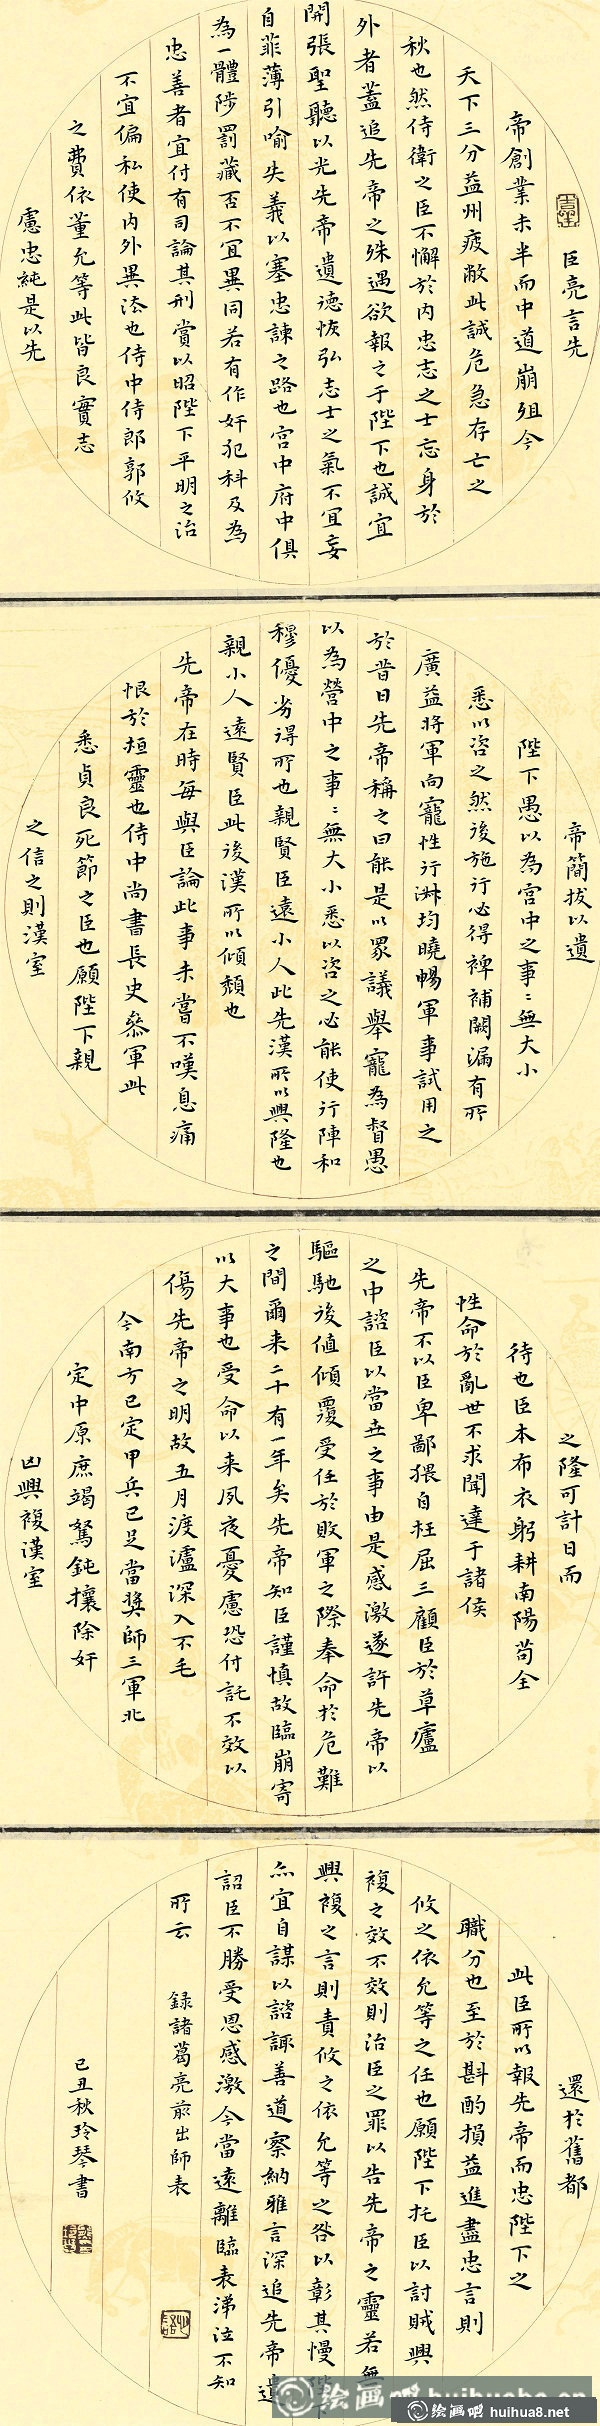 臣亮言先
帝創業未半而中道崩殂今
天下三分益州疲敝此誠危急存亡之
秋也然侍衛之臣不懈於內忠志之士忘身於
外者蓋追先帝之殊遇欲報之于陛下也誠宜
開張聖聽以光先帝遺德恢弘志士之氣不宜妄
自菲薄引喻失義以塞忠諫之路也宮中府中俱
為一體陟罰藏否不宜異同若有作奸犯科及為
忠善者宜付有司論其刑賞以昭陛下平明之治
不宜偏私使內外異法也侍中侍郎郭攸
之費依董允等此皆良實志
慮忠純是以先
帝簡拔以遺
陛下愚以為宮中之事〻無大小
悉以咨之然後施行必得裨補闕漏有所
廣益將軍向寵性行淑均曉暢軍事試用之
於昔日先帝稱之曰能是以眾議舉寵為督愚
以為營中之事〻無大小悉以咨之必能使行陣和
穆優劣得所也親賢臣遠小人此先漢所以興隆也
親小人遠賢臣此後漢所以傾頹也
先帝在時每與臣論此事未嘗不嘆息痛
恨於桓靈也侍中尚書長史參軍此
悉貞良死節之臣也願陛下親
之信之則漢室
之隆可計日而
待也臣本布衣躬耕南陽苟全
性命於亂世不求聞達于諸侯
先帝不以臣卑鄙猥自枉屈三顧臣於草廬
之中諮臣以當世之事由是感激遂許先帝以
驅馳後值傾覆受任於敗軍之際奉命於危難
之間爾來二十有一年矣先帝知臣謹慎故臨崩寄
以大事也受命以來夙夜憂慮恐付託不效以
傷先帝之明故五月渡瀘深入不毛
今南方已定甲兵已足當獎師三軍北
定中原庶竭駑鈍攘除奸
凶興複漢室
還於舊都
此臣所以報先帝而忠陛下之
職分也至於斟酌損益進盡忠言則
攸之依允等之任也願陛下托臣以討賊興
複之效不效則治臣之罪以告先帝之靈若無
興複之言則責攸之依允等之咎以彰其慢陛下
亦宜自謀以諮諏善道察納雅言深追先帝遺
詔臣不勝受恩感激今當遠離臨表涕泣不知
所云 錄諸葛亮前出師表
己丑秋玲琴書
绘画吧 huihua8.net